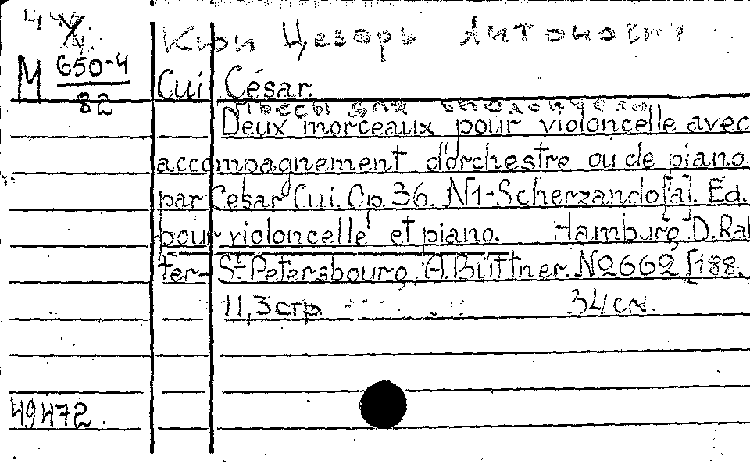 Кюи Цезарь Антонович
М 650-4
82
Cui César.
Пьесы для виолончели
Deux morceaux pour violoncelle avec
accompagnement d'orchestre ou de piano
par César Cui. Op. 36. N1-Scherzando[a]. Ed.
pour violoncelle et piano. Hamburg, D. Rah
ter- St. Petersbourg, A. Büttner. №662 [188
11,3 стр. 34 см.
49472.